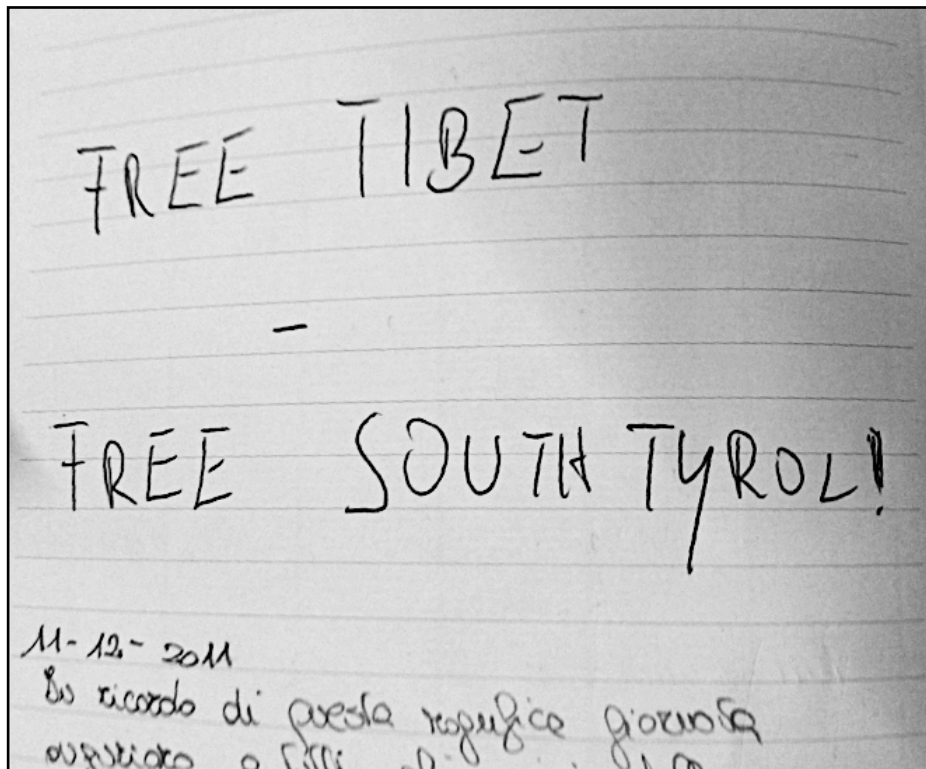 FREE TIBET
-
FREE SOUTH TYROL!
11-12-2011
In ricordo di questa magnifica giornata
auguriamo a tutti